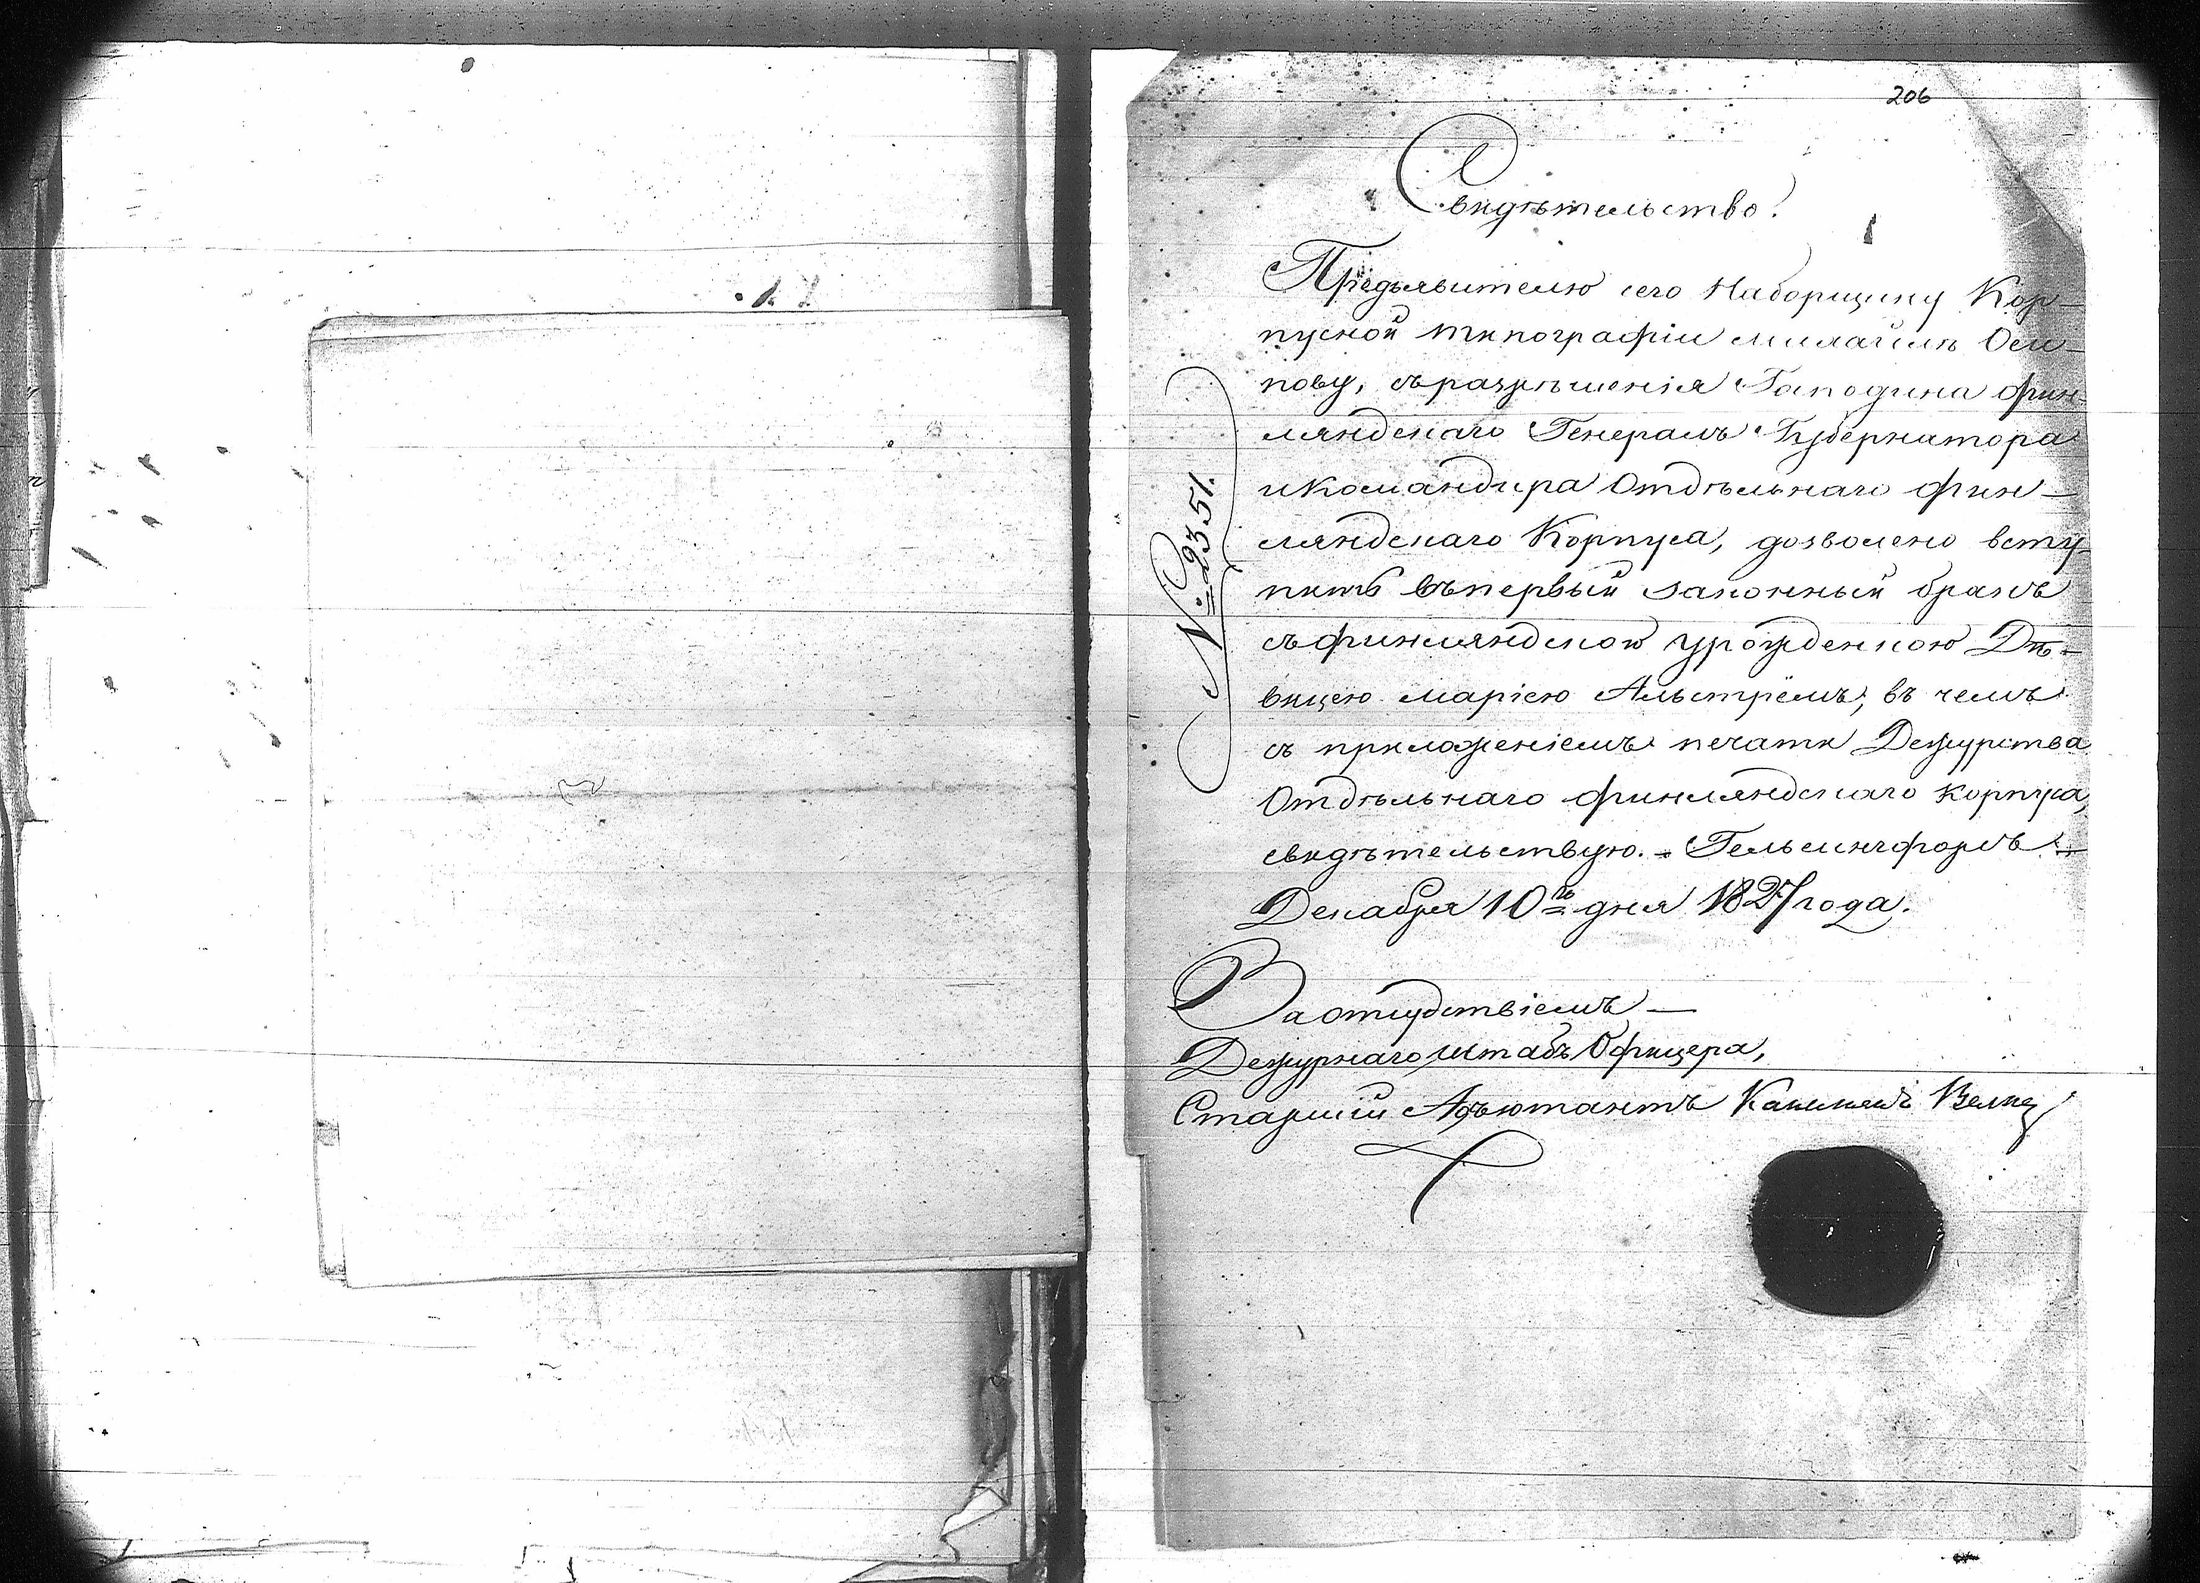 206
Свидѣтельство.
Предъявителю сего Наборщику Кор-
пусной типографіи Михайлѣ Оси-
пову, съ разрѣшенія Господина Фин-
ляндскаго Генералъ Губернатора
и Командира Отдѣльнаго Фин-
ляндскаго Корпуса, дозволено всту-
пить въ первый законный бракъ
съ финляндскою урожденкою Дѣ-
вицею Маріею Альстрёмъ, въ чемъ
съ приложеніемъ печати Дежурства
Отдѣльнаго Финляндскаго Корпуса,
свидѣтельствую. - Гельсингфорсъ -
Декабря 10го дня 1827 года.
№ 2351.
За отсудствіемъ -
Дежурнаго Штабъ Офицера,
Старшій Адъютантъ Капитанъ